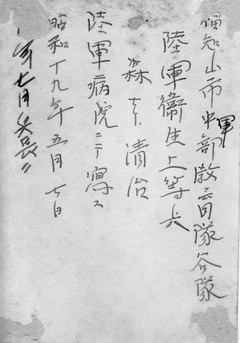 福知山市中部軍教育隊谷隊
陸軍衛生上等兵
森本清治
陸軍病院ニテ寫ス
昭和十九年五月 日
〃年七月兵長〃